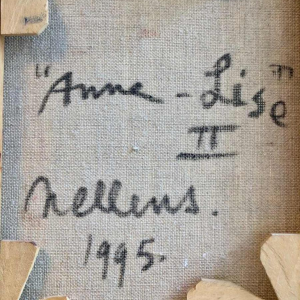 "Anne - Lise"
II
Nellens.
1995.